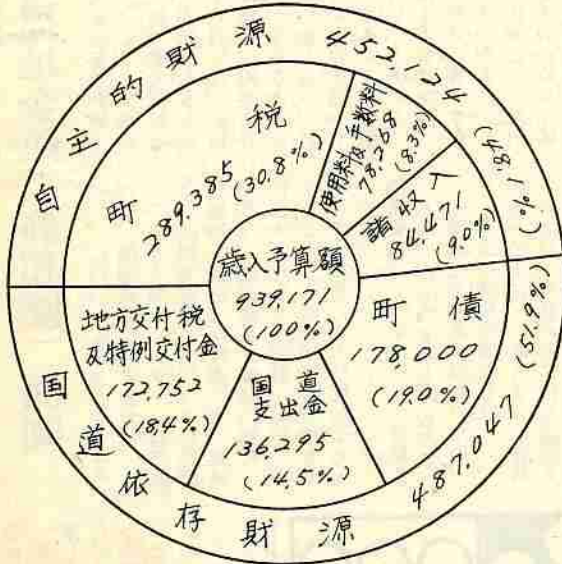 自主的財源 452,124 (48.1%)
町税
289,385
(30.8%)
使用料及手数料
78,268
(8.3%)
諸収入
84,471
(9.0%)
歳入予算額
939,171
(100%)
町債
178,000
(19.0%)
国道
支出金
136,295
(14.5%)
地方交付税
及特例交付金
172,752
(18.4%)
国道依存財源 487,047 (51.9%)